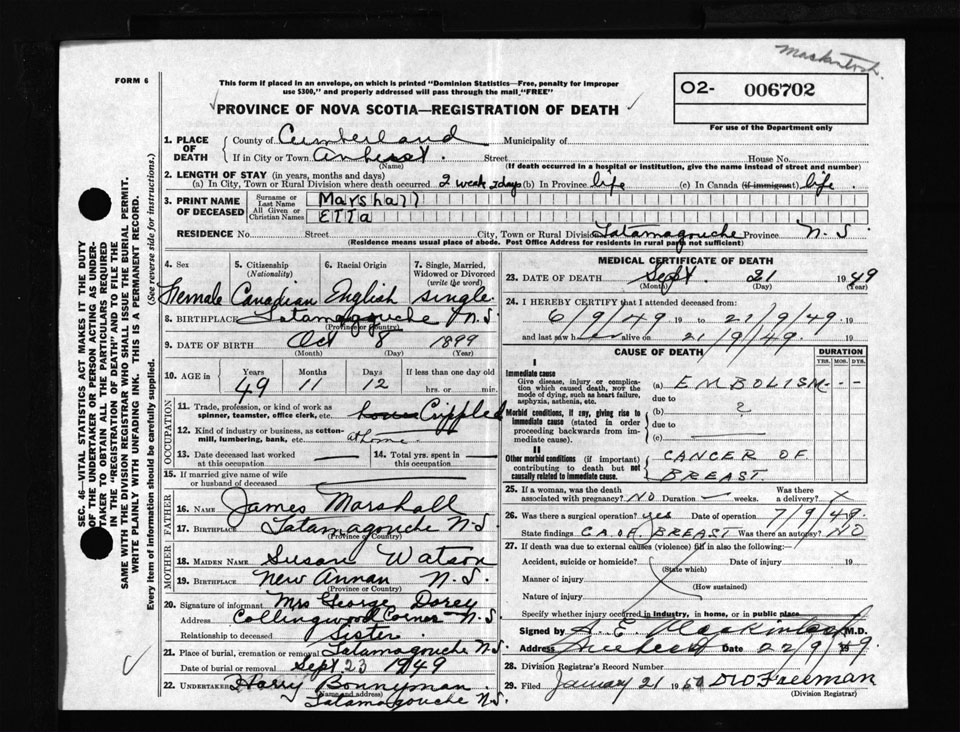 Mackintosh.
FORM 6
This form if placed in an envelope, on which is printed "Dominion Statistics—Free, penalty for improper
use $300," and properly addressed will pass through the mail "FREE"
PROVINCE OF NOVA SCOTIA—REGISTRATION OF DEATH
O2- 006702
For use of the Department only
SEC. 46—VITAL STATISTICS ACT MAKES IT THE DUTY
OF THE UNDERTAKER OR PERSON ACTING AS UNDER-
TAKER TO OBTAIN ALL THE PARTICULARS REQUIRED
IN THE "REGISTRATION OF DEATH" AND TO FILE THE
SAME WITH THE DIVISION REGISTRAR WHO SHALL ISSUE THE BURIAL PERMIT.
WRITE PLAINLY WITH UNFADING INK. THIS IS A PERMANENT RECORD.
Every item of Information should be carefully supplied. (See reverse side for instructions.)
1. PLACE OF DEATH
County of Cumberland Municipality of
If in City or Town Amherst. Street House No.
(Name) (If death occurred in a hospital or institution, give the name instead of street and number)
2. LENGTH OF STAY (in years, months and days)
(a) In City, Town or Rural Division where death occurred 2 week 2 days (b) In Province life (c) In Canada (if immigrant) life.
3. PRINT NAME OF DECEASED
Surname or Last Name Marshall
All Given or Christian Names ETTA
RESIDENCE No. Street City, Town or Rural Division Tatamagouche Province N. S.
(Residence means usual place of abode. Post Office Address for residents in rural parts not sufficient)
4. Sex 5. Citizenship (Nationality) 6. Racial Origin 7. Single, Married, Widowed or Divorced (write the word)
Female Canadian English single.
8. BIRTHPLACE Tatamagouche N.S.
(Province or Country)
9. DATE OF BIRTH Oct 8 1899
(Month) (Day) (Year)
10. AGE in Years Months Days If less than one day old
49 11 12 hrs. or min.
OCCUPATION
11. Trade, profession or kind of work as spinner, teamster, office clerk, etc. house Crippled
12. Kind of industry or business, as cotton-mill, lumbering, bank, etc. at home
13. Date deceased last worked at this occupation
14. Total yrs. spent in this occupation
15. If married give name of wife or husband of deceased
FATHER
16. NAME James Marshall
17. BIRTHPLACE Tatamagouche N.S.
(Province or Country)
MOTHER
18. MAIDEN NAME Susan Watson
19. BIRTHPLACE New Annan N.S.
(Province or Country)
20. Signature of informant Mrs George Dorey
Address Collingwood Corner N.S.
Relationship to deceased Sister.
21. Place of burial, cremation or removal Tatamagouche N.S.
Date of burial or removal Sept 23 1949
22. UNDERTAKER Harry Bonnyman
(Name and address)
Tatamagouche N.S.
MEDICAL CERTIFICATE OF DEATH
23. DATE OF DEATH Sept. 21 1949
(Month) (Day) (Year)
24. I HEREBY CERTIFY that I attended deceased from:
6/9/49 19 to 21/9/49. 19
and last saw h alive on 21/9/49. 19
CAUSE OF DEATH DURATION
YRS. MOS. DYS.
I
Immediate cause
Give disease, injury or complication which caused death, NOT the mode of dying, such as heart failure, asphyxia, asthenia, etc.
(a) EMBOLISM - - -
due to
Morbid conditions, if any, giving rise to immediate cause (stated in order proceeding backwards from immediate cause).
(b) ?
due to
(c)
II
Other morbid conditions (if important) contributing to death but not causally related to immediate cause.
CANCER OF
BREAST.
25. If a woman, was the death associated with pregnancy? NO Duration weeks. Was there a delivery?
26. Was there a surgical operation? yes Date of operation 7/9/49.
State findings CA. OF BREAST Was there an autopsy? NO
27. If death was due to external causes (violence) fill in also the following:
Accident, suicide or homicide? Date of injury 19
(State which)
Manner of injury
(How sustained)
Nature of injury
Specify whether injury occurred in industry, in home, or in public place
Signed by A. E. Mackintosh M.D.
Address Amherst Date 22/9/49
28. Division Registrar's Record Number
29. Filed January 21 1950 DW Freeman
(Division Registrar)